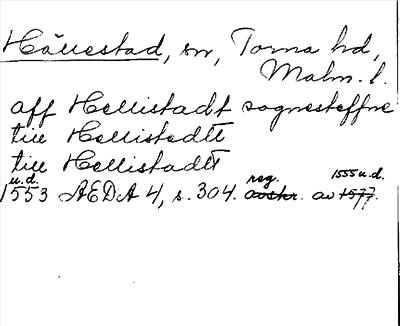 Hällestad, sn, Torna hd,
Malm. l.
aff Hellistadt sognesteffne
till Hellistedtt
till Hellistadtt
u.d. reg. 1555 u.d.
1553 ÆDA 4, s. 304. avskr. av 1577.